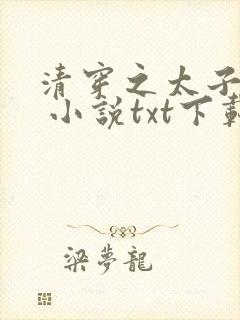 清穿之太子
小説txt下載
梁夢龍